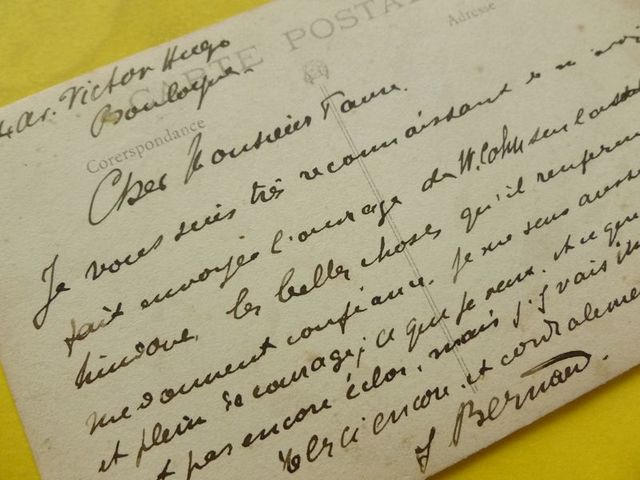 CARTE POSTALE
Correspondance
Adresse
4 av. Victor Hugo
Boulogne.
Cher Monsieur Faure.
Je vous suis très reconnaissant de m'avoir
fait envoyer l'ouvrage de W. Cohn sur la
hindoue, les belles choses qu'il renferme
me donnent confiance, je me sens aussi
et plein de courage; ce que je veux, et ce que
pas encore éclos, mais j'y vais
Merci encore, et cordialement
J Bernard.